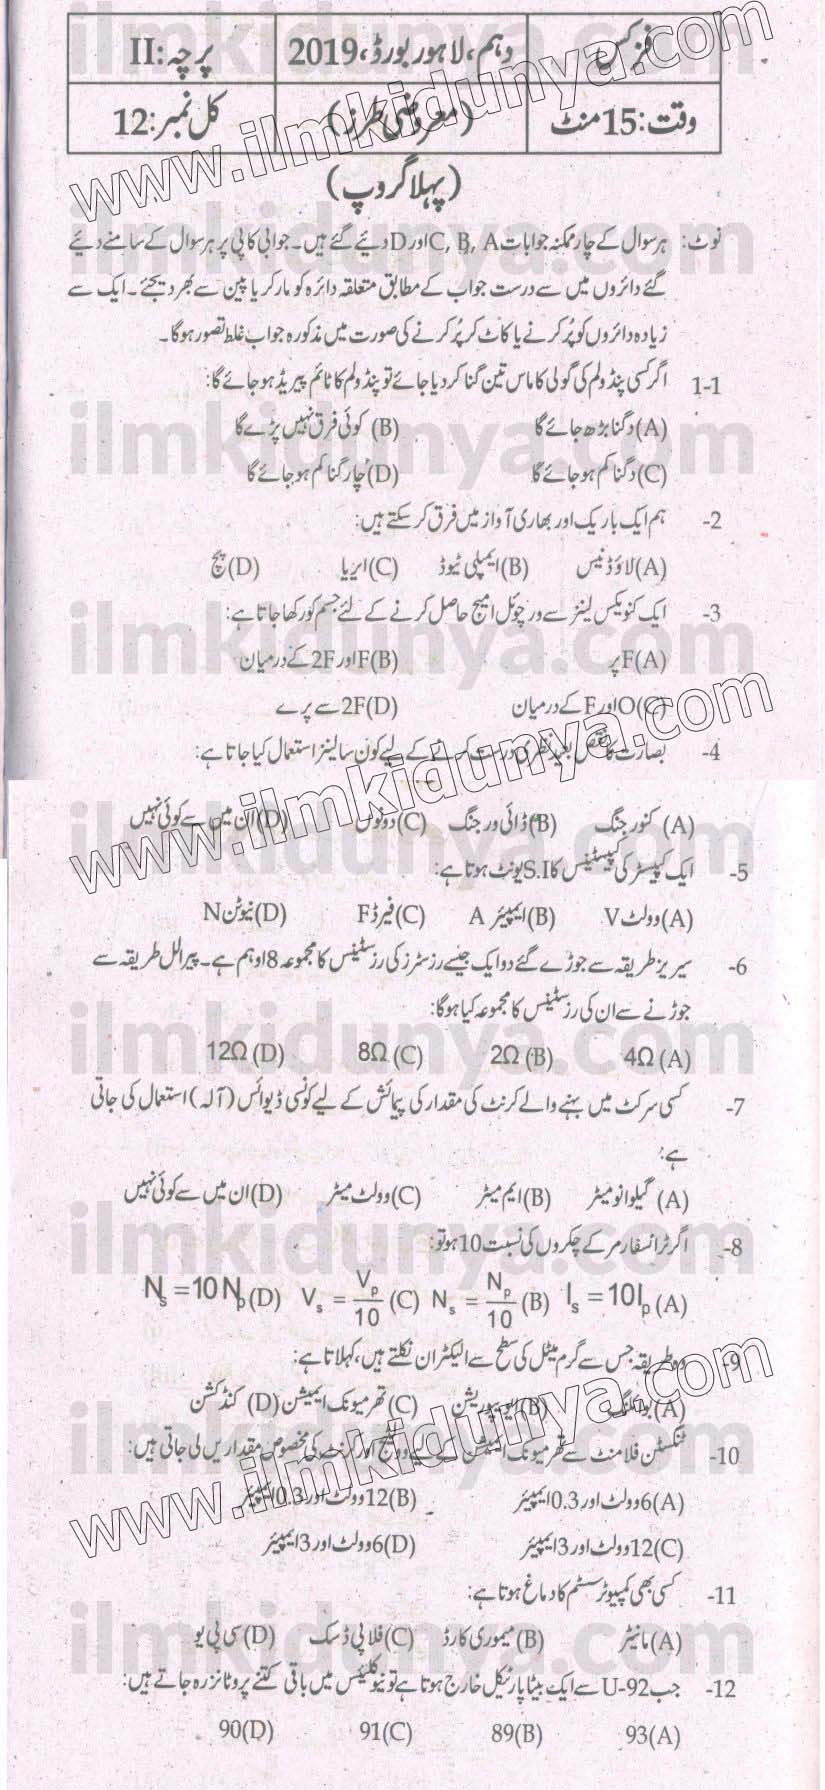 فزکس
دہم، لاہور بورڈ، 2019
پرچہ: II
وقت: 15 منٹ
(معروضی طرز)
کل نمبر: 12
(پہلا گروپ)
نوٹ: ہر سوال کے چار ممکنہ جوابات C, B, A اور D دیئے گئے ہیں۔ جوابی کاپی پر ہر سوال کے سامنے دیئے
گئے دائروں میں سے درست جواب کے مطابق متعلقہ دائرہ کو مارکر یا پین سے بھر دیجئے۔ ایک سے
زیادہ دائروں کو پُر کرنے یا کاٹ کر پُر کرنے کی صورت میں مذکورہ جواب غلط تصور ہوگا۔
1-1 اگر کسی پنڈولم کی گولی کا ماس تین گنا کر دیا جائے تو پنڈولم کا ٹائم پیریڈ ہو جائے گا:
(A) دگنا بڑھ جائے گا (B) کوئی فرق نہیں پڑے گا
(C) دگنا کم ہو جائے گا (D) چار گنا کم ہو جائے گا
2- ہم ایک باریک اور بھاری آواز میں فرق کر سکتے ہیں:
(A) لاؤڈنیس (B) ایمپلی ٹیوڈ (C) ایریا (D) پچ
3- ایک کنویکس لینز سے ورچوئل امیج حاصل کرنے کے لئے جسم کو رکھا جاتا ہے:
(A) F پر (B) F اور 2F کے درمیان
(C) O اور F کے درمیان (D) 2F سے پرے
4- بصارت کا نقص بعید نظری درست کرنے کے لیے کون سا لینز استعمال کیا جاتا ہے:
(A) کنورجنگ (B) ڈائی ورجنگ (C) دونوں (D) ان میں سے کوئی نہیں
5- ایک کپیسٹر کی کپیسٹینس کا S.I یونٹ ہوتا ہے:
(A) وولٹ V (B) ایمپیئر A (C) فیرڈ F (D) نیوٹن N
6- سیریز طریقہ سے جوڑے گئے دو ایک جیسے رزسٹرز کی رزسٹینس کا مجموعہ 8 اوہم ہے۔ پیرالل طریقہ سے
جوڑنے سے ان کی رزسٹینس کا مجموعہ کیا ہوگا:
(A) 4Ω (B) 2Ω (C) 8Ω (D) 12Ω
7- کسی سرکٹ میں بہنے والے کرنٹ کی مقدار کی پیمائش کے لیے کونسی ڈیوائس (آلہ) استعمال کی جاتی
ہے:
(A) گیلوانومیٹر (B) ایم میٹر (C) وولٹ میٹر (D) ان میں سے کوئی نہیں
8- اگر ٹرانسفارمر کے چکروں کی نسبت 10 ہو تو:
(A) I_s = 10I_p (B) N_s = N_p/10 (C) V_s = V_p/10 (D) N_s = 10 N_p
9- وہ طریقہ جس سے گرم میٹل کی سطح سے الیکٹران نکلتے ہیں، کہلاتا ہے:
(A) بوائلنگ (B) ایویپوریشن (C) تھرمیونک ایمیشن (D) کنڈکشن
10- ٹنگسٹن فلامنٹ سے تھرمیونک ایمیشن کے لیے وولٹیج اور کرنٹ کی مخصوص مقداریں لی جاتی ہیں:
(A) 6 وولٹ اور 0.3 ایمپیئر (B) 12 وولٹ اور 0.3 ایمپیئر
(C) 12 وولٹ اور 3 ایمپیئر (D) 6 وولٹ اور 3 ایمپیئر
11- کسی بھی کمپیوٹر سسٹم کا دماغ ہوتا ہے:
(A) مانیٹر (B) میموری کارڈ (C) فلاپی ڈسک (D) سی پی یو
12- جب U-92 سے ایک بیٹا پارٹیکل خارج ہوتا ہے تو نیوکلیئس میں باقی کتنے پروٹانز رہ جاتے ہیں:
(A) 93 (B) 89 (C) 91 (D) 90
www.ilmkidunya.com
ilmkidunya.com